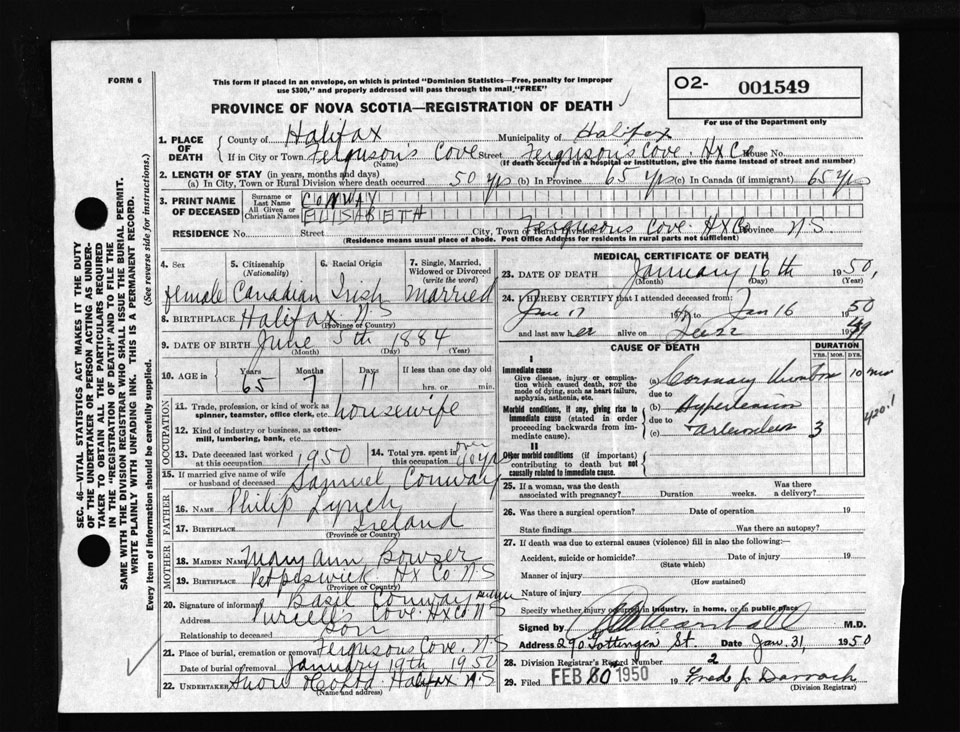 FORM 6
This form if placed in an envelope, on which is printed "Dominion Statistics—Free, penalty for improper
use $300," and properly addressed will pass through the mail "FREE"
PROVINCE OF NOVA SCOTIA—REGISTRATION OF DEATH
O2- 001549
For use of the Department only
1. PLACE OF DEATH
County of Halifax Municipality of Halifax
If in City or Town Ferguson's Cove Street Ferguson's Cove. Hx Co House No.
(Name) (If death occurred in a hospital or institution, give the name instead of street and number)
2. LENGTH OF STAY (in years, months and days)
(a) In City, Town or Rural Division where death occurred 50 yrs (b) In Province 65 yrs (c) In Canada (if immigrant) 65 yrs
3. PRINT NAME OF DECEASED
Surname or Last Name CONWAY
All Given or Christian Names ELISABETH
RESIDENCE No. Street City, Town or Rural Fergusons Cove. Hx Co Province N.S.
(Residence means usual place of abode. Post Office Address for residents in rural parts not sufficient)
4. Sex female
5. Citizenship (Nationality) Canadian
6. Racial Origin Irish
7. Single, Married, Widowed or Divorced (write the word) Married
8. BIRTHPLACE Halifax N.S
(Province or Country)
9. DATE OF BIRTH June 5th 1884
(Month) (Day) (Year)
10. AGE in Years 65 Months 7 Days 11 If less than one day old
hrs. or min.
OCCUPATION
11. Trade, profession, or kind of work as spinner, teamster, office clerk, etc. housewife
12. Kind of industry or business, as cotton-mill, lumbering, bank, etc.
13. Date deceased last worked at this occupation 1950
14. Total yrs. spent in this occupation over 40 yrs
15. If married give name of wife or husband of deceased Samuel Conway
FATHER
16. NAME Philip Lynch
17. BIRTHPLACE Ireland
(Province or Country)
MOTHER
18. MAIDEN NAME Mary Ann Bowser
19. BIRTHPLACE Petpeswick Hx Co N.S
(Province or Country)
20. Signature of informant Basil Conway
Address Purcells Cove. Hx Co N S
Relationship to deceased Son
21. Place of burial, cremation or removal Fergusons Cove, N.S
Date of burial or removal January 19th, 1950
22. UNDERTAKER Snow Halifax N.S
(Name and address)
MEDICAL CERTIFICATE OF DEATH
23. DATE OF DEATH January 16th 1950,
(Month) (Day)
24. I HEREBY CERTIFY that I attended deceased from:
to Jan 16 1950
and last saw her alive on 19
CAUSE OF DEATH
DURATION
YRS. MOS. DYS.
I
Immediate cause
Give disease, injury or complication which caused death, NOT the mode of dying, such as heart failure, asphyxia, asthenia, etc.
(a) Coronary 10 min
due to
Morbid conditions, if any, giving rise to immediate cause (stated in order proceeding backwards from immediate cause).
(b) Hypertension
due to
(c) 3
420.1
II
Other morbid conditions (if important) contributing to death but not causally related to immediate cause.
25. If a woman, was the death associated with pregnancy? Duration weeks. Was there a delivery?
26. Was there a surgical operation? Date of operation 19
State findings Was there an autopsy?
27. If death was due to external causes (violence) fill in also the following:—
Accident, suicide or homicide? Date of injury 19
(State which)
Manner of injury
(How sustained)
Nature of injury
Specify whether injury occurred in industry, in home, or in public place
Signed by M.D.
Address 290 Gottingen St. Date Jan. 31, 1950
28. Division Registrar's Record Number 2
29. Filed FEB 1950 19 Fred J. Darrach
(Division Registrar)
SEC. 46—VITAL STATISTICS ACT MAKES IT THE DUTY
OF THE UNDERTAKER OR PERSON ACTING AS UNDER-
TAKER TO OBTAIN ALL THE PARTICULARS REQUIRED
IN THE "REGISTRATION OF DEATH" AND TO FILE THE
SAME WITH THE DIVISION REGISTRAR WHO SHALL ISSUE THE BURIAL PERMIT.
WRITE PLAINLY WITH UNFADING INK. THIS IS A PERMANENT RECORD.
Every item of information should be carefully supplied. (See reverse side for instructions.)